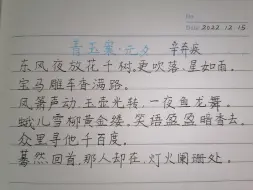 Date 2022.12.15
青玉案·元夕 辛弃疾
东风夜放花千树,更吹落、星如雨。
宝马雕车香满路。
凤箫声动,玉壶光转,一夜鱼龙舞。
蛾儿雪柳黄金缕,笑语盈盈暗香去。
众里寻他千百度,
蓦然回首,那人却在,灯火阑珊处。